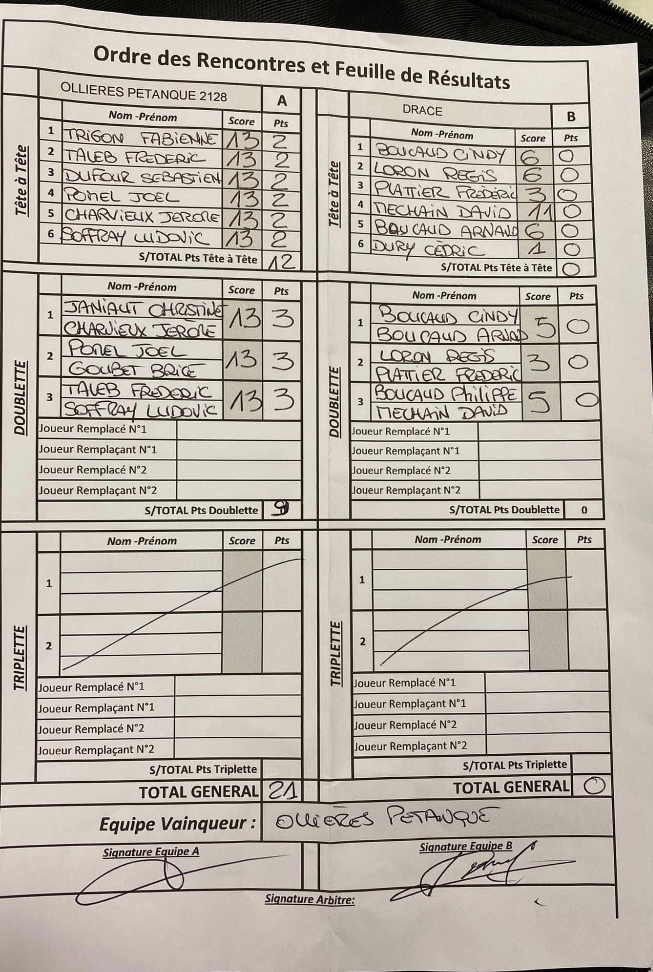 Ordre des Rencontres et Feuille de Résultats
OLLIERES PETANQUE 2128 A
Nom -Prénom Score Pts
Tête à Tête
1 TRIGON FABIENNE 13 2
2 TALEB FREDERIC 13 2
3 DUFOUR SEBASTIEN 13 2
4 POMEL JOEL 13 2
5 CHARVIEUX JEROME 13 2
6 SOFFRAY LUDOVIC 13 2
S/TOTAL Pts Tête à Tête 12
DRACE B
Nom -Prénom Score Pts
Tête à Tête
1 BOUCAUD CINDY 6 0
2 LORON REGIS 6 0
3 PLATTIER FRÉDÉRIC 3 0
4 MECHAIN DAVID 11 0
5 BOUCAUD ARNAUD 6 0
6 DURY CÉDRIC 1 0
S/TOTAL Pts Tête à Tête 0
Nom -Prénom Score Pts
DOUBLETTE
1 JANIAUT CHRISTINE 13 3
CHARVIEUX JEROME
2 POMEL JOEL 13 3
GOUBET BRICE
3 TALEB FREDERIC 13 3
SOFFRAY LUDOVIC
Joueur Remplacé N°1
Joueur Remplaçant N°1
Joueur Remplacé N°2
Joueur Remplaçant N°2
S/TOTAL Pts Doublette 9
Nom -Prénom Score Pts
DOUBLETTE
1 BOUCAUD CINDY 5 0
BOUCAUD ARNAD
2 LORON REGIS 3 0
PLATTIER FREDERIC
3 BOUCAUD PhiLIPPE 5 0
MECHAIN DAVID
Joueur Remplacé N°1
Joueur Remplaçant N°1
Joueur Remplacé N°2
Joueur Remplaçant N°2
S/TOTAL Pts Doublette 0
Nom -Prénom Score Pts
TRIPLETTE
1
2
Joueur Remplacé N°1
Joueur Remplaçant N°1
Joueur Remplacé N°2
Joueur Remplaçant N°2
S/TOTAL Pts Triplette
TOTAL GENERAL 21
Nom -Prénom Score Pts
TRIPLETTE
1
2
Joueur Remplacé N°1
Joueur Remplaçant N°1
Joueur Remplacé N°2
Joueur Remplaçant N°2
S/TOTAL Pts Triplette
TOTAL GENERAL 0
Equipe Vainqueur : OLLIERES PETANQUE
Signature Equipe A
Signature Equipe B
Signature Arbitre: